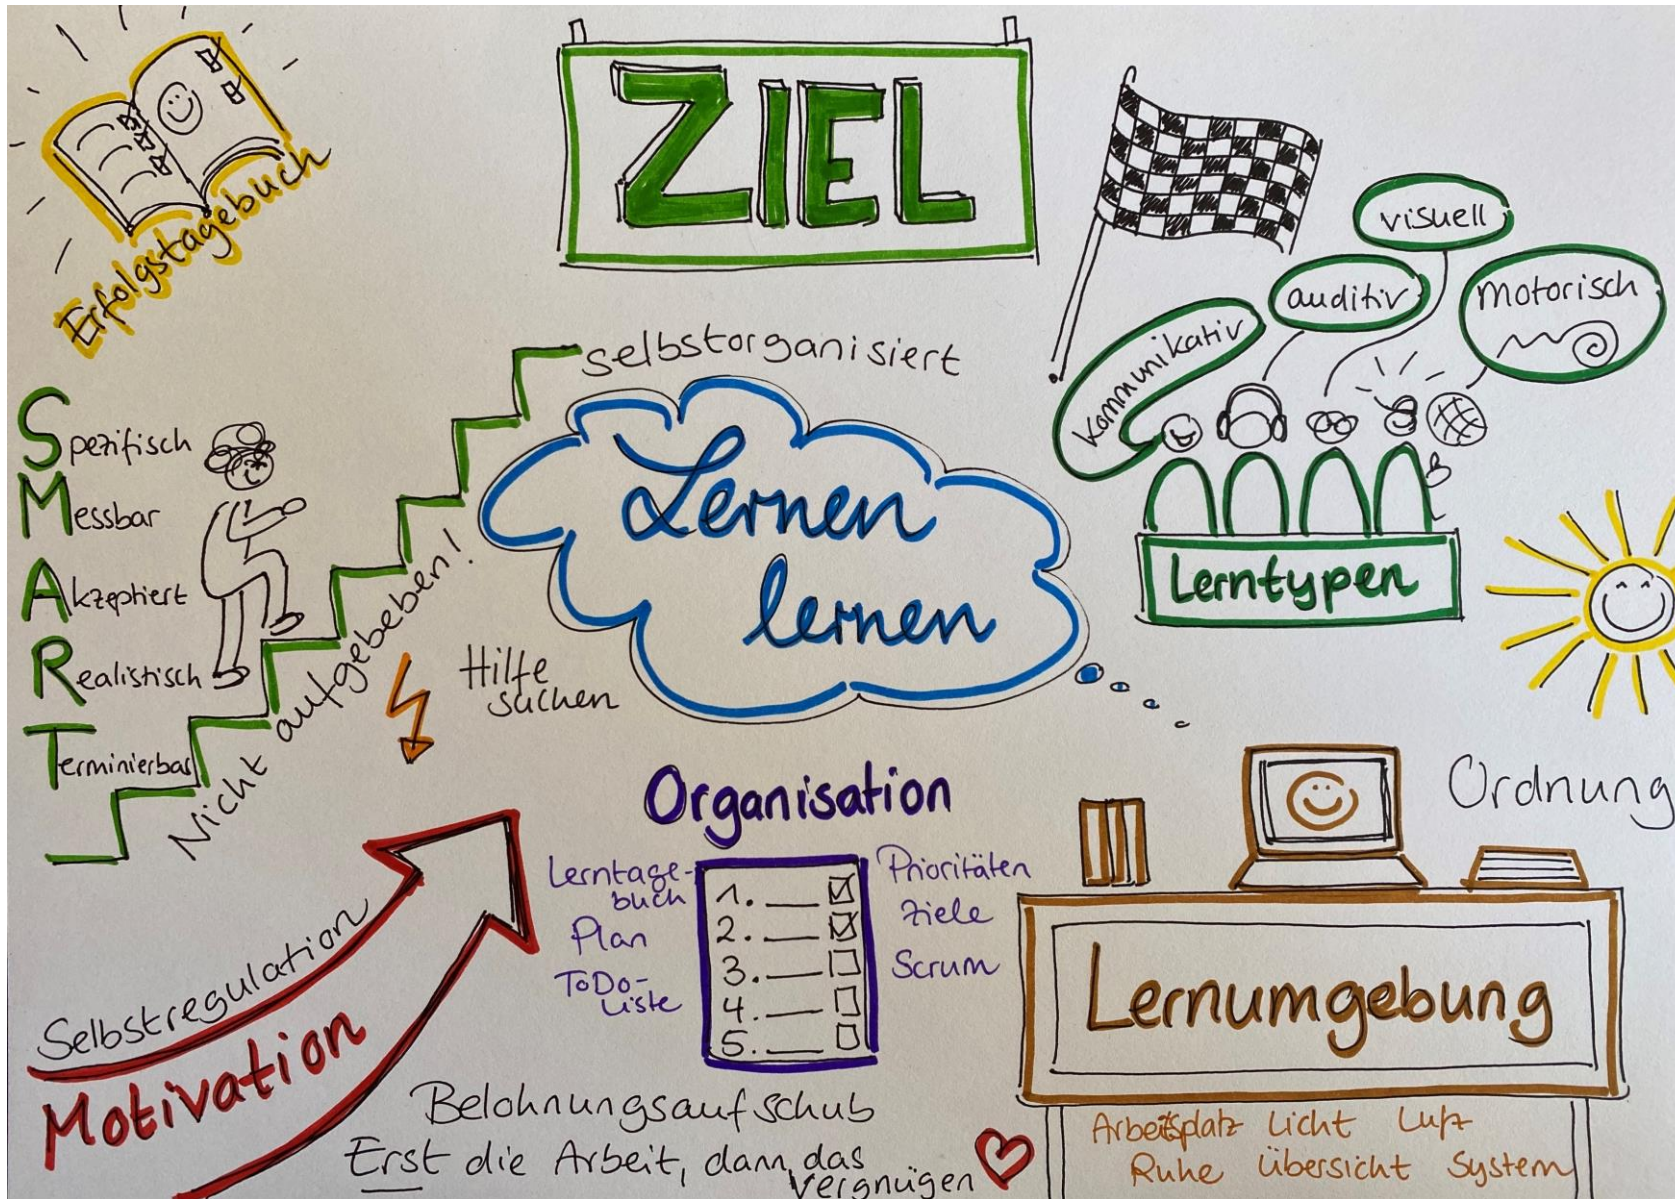 Erfolgstagebuch
ZIEL
visuell
auditiv
motorisch
kommunikativ
Lerntypen
selbstorganisiert
Lernen
lernen
Spezifisch
Messbar
Akzeptiert
Realistisch
Terminierbar
Nicht aufgeben!
Hilfe
suchen
Organisation
Lerntage-
buch
Plan
ToDo-
Liste
1.
2.
3.
4.
5.
Prioritäten
Ziele
Scrum
Ordnung
Lernumgebung
Arbeitsplatz Licht Luft
Ruhe Übersicht System
Selbstregulation
Motivation
Belohnungsaufschub
Erst die Arbeit, dann das
Vergnügen